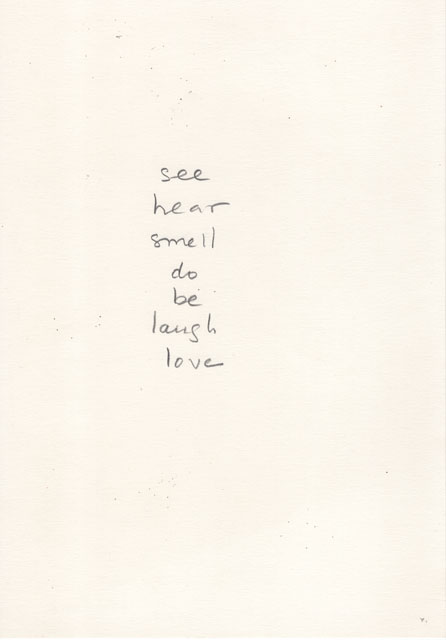 see
hear
smell
do
be
laugh
love